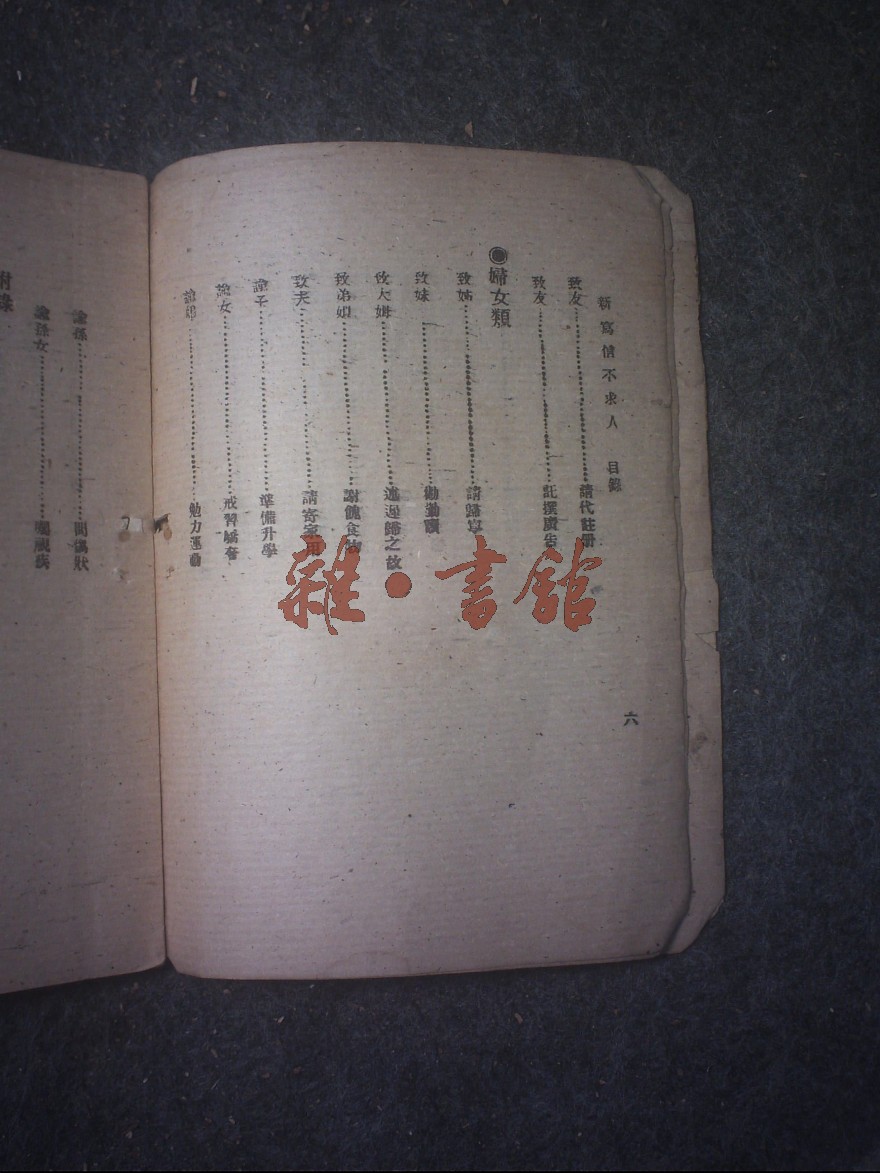 新寫信不求人 目錄
六
致友……請代註册
致友……託撰廣告
◉婦女類
致姊……請歸寧
致妹……勸勤讀
致大姆……述遲歸之故
致弟娣……謝餽食物
致夫……請寄家用
諭子……準備升學
諭女……戒習嬌奢
勉力運動
諭孫……問病狀
諭孫女
附錄
雜·書館